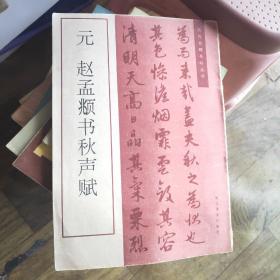 元 赵孟頫书秋声赋
為而来哉盖夫秋之為状也
其色惨淡烟霏雲斂其容
清明天高日晶其氣栗烈